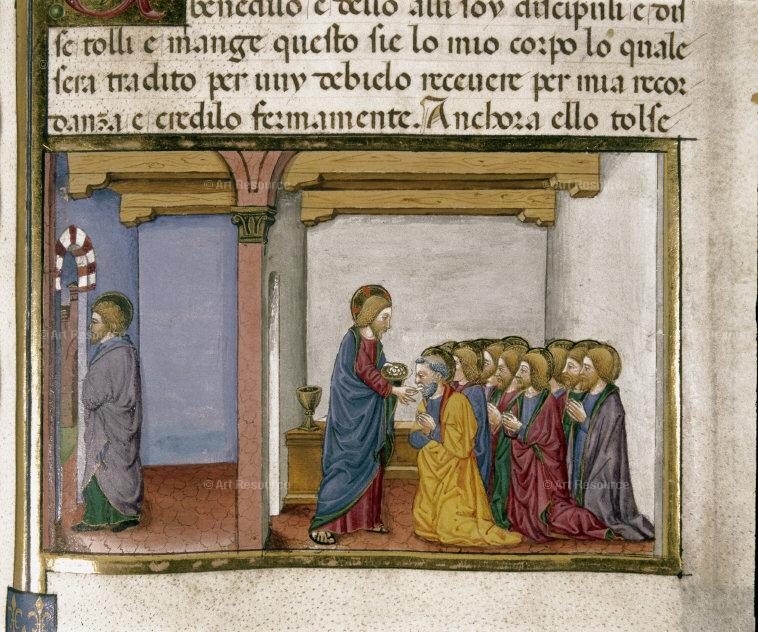 benedilo e dello alli soy discipuli e dis
se tolli e mange questo sie lo mio corpo lo quale
sera tradito per vuy debielo recevere per mia recor
danza e credilo fermamente. Anchora ello tolse
© Art Resource © Art Resource © Art Resource
© Art Resource © Art Resource © Art Resource
© Art Resource © Art Resource © Art Resource